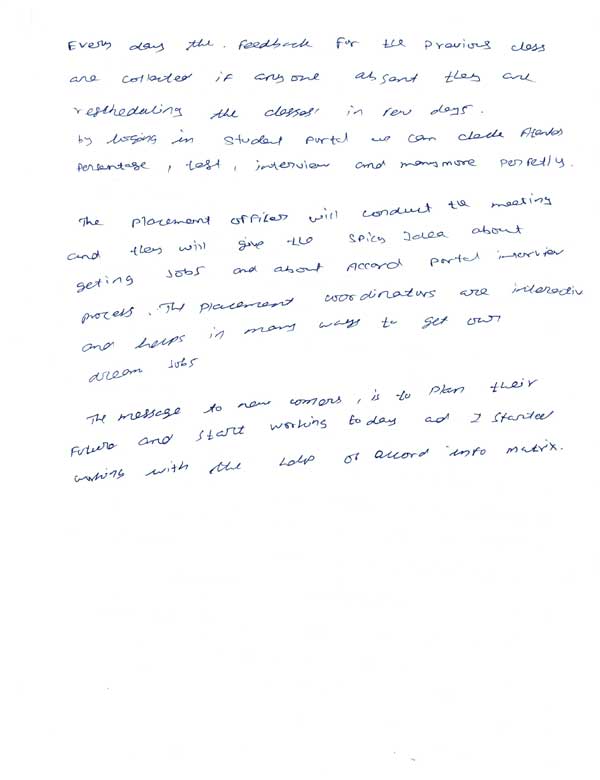 Every day the. Feedback For the Previous class
are collected if any one absant they are
restheduling the classes' in few days.
by loging in Student Portal we can check Atandas
Persentage, test, interview and many more perfetly.
The Placement officer will conduct the meeting
and they will give the Spicy Idea about
geting Jobs and about Accord Portal interview
process. The placement coordinators are interactiv
and helps in many ways to get own
dream Jobs
The message to new comers, is to Plan their
Future and start working today ad I started
working with the help of accord info matrix.